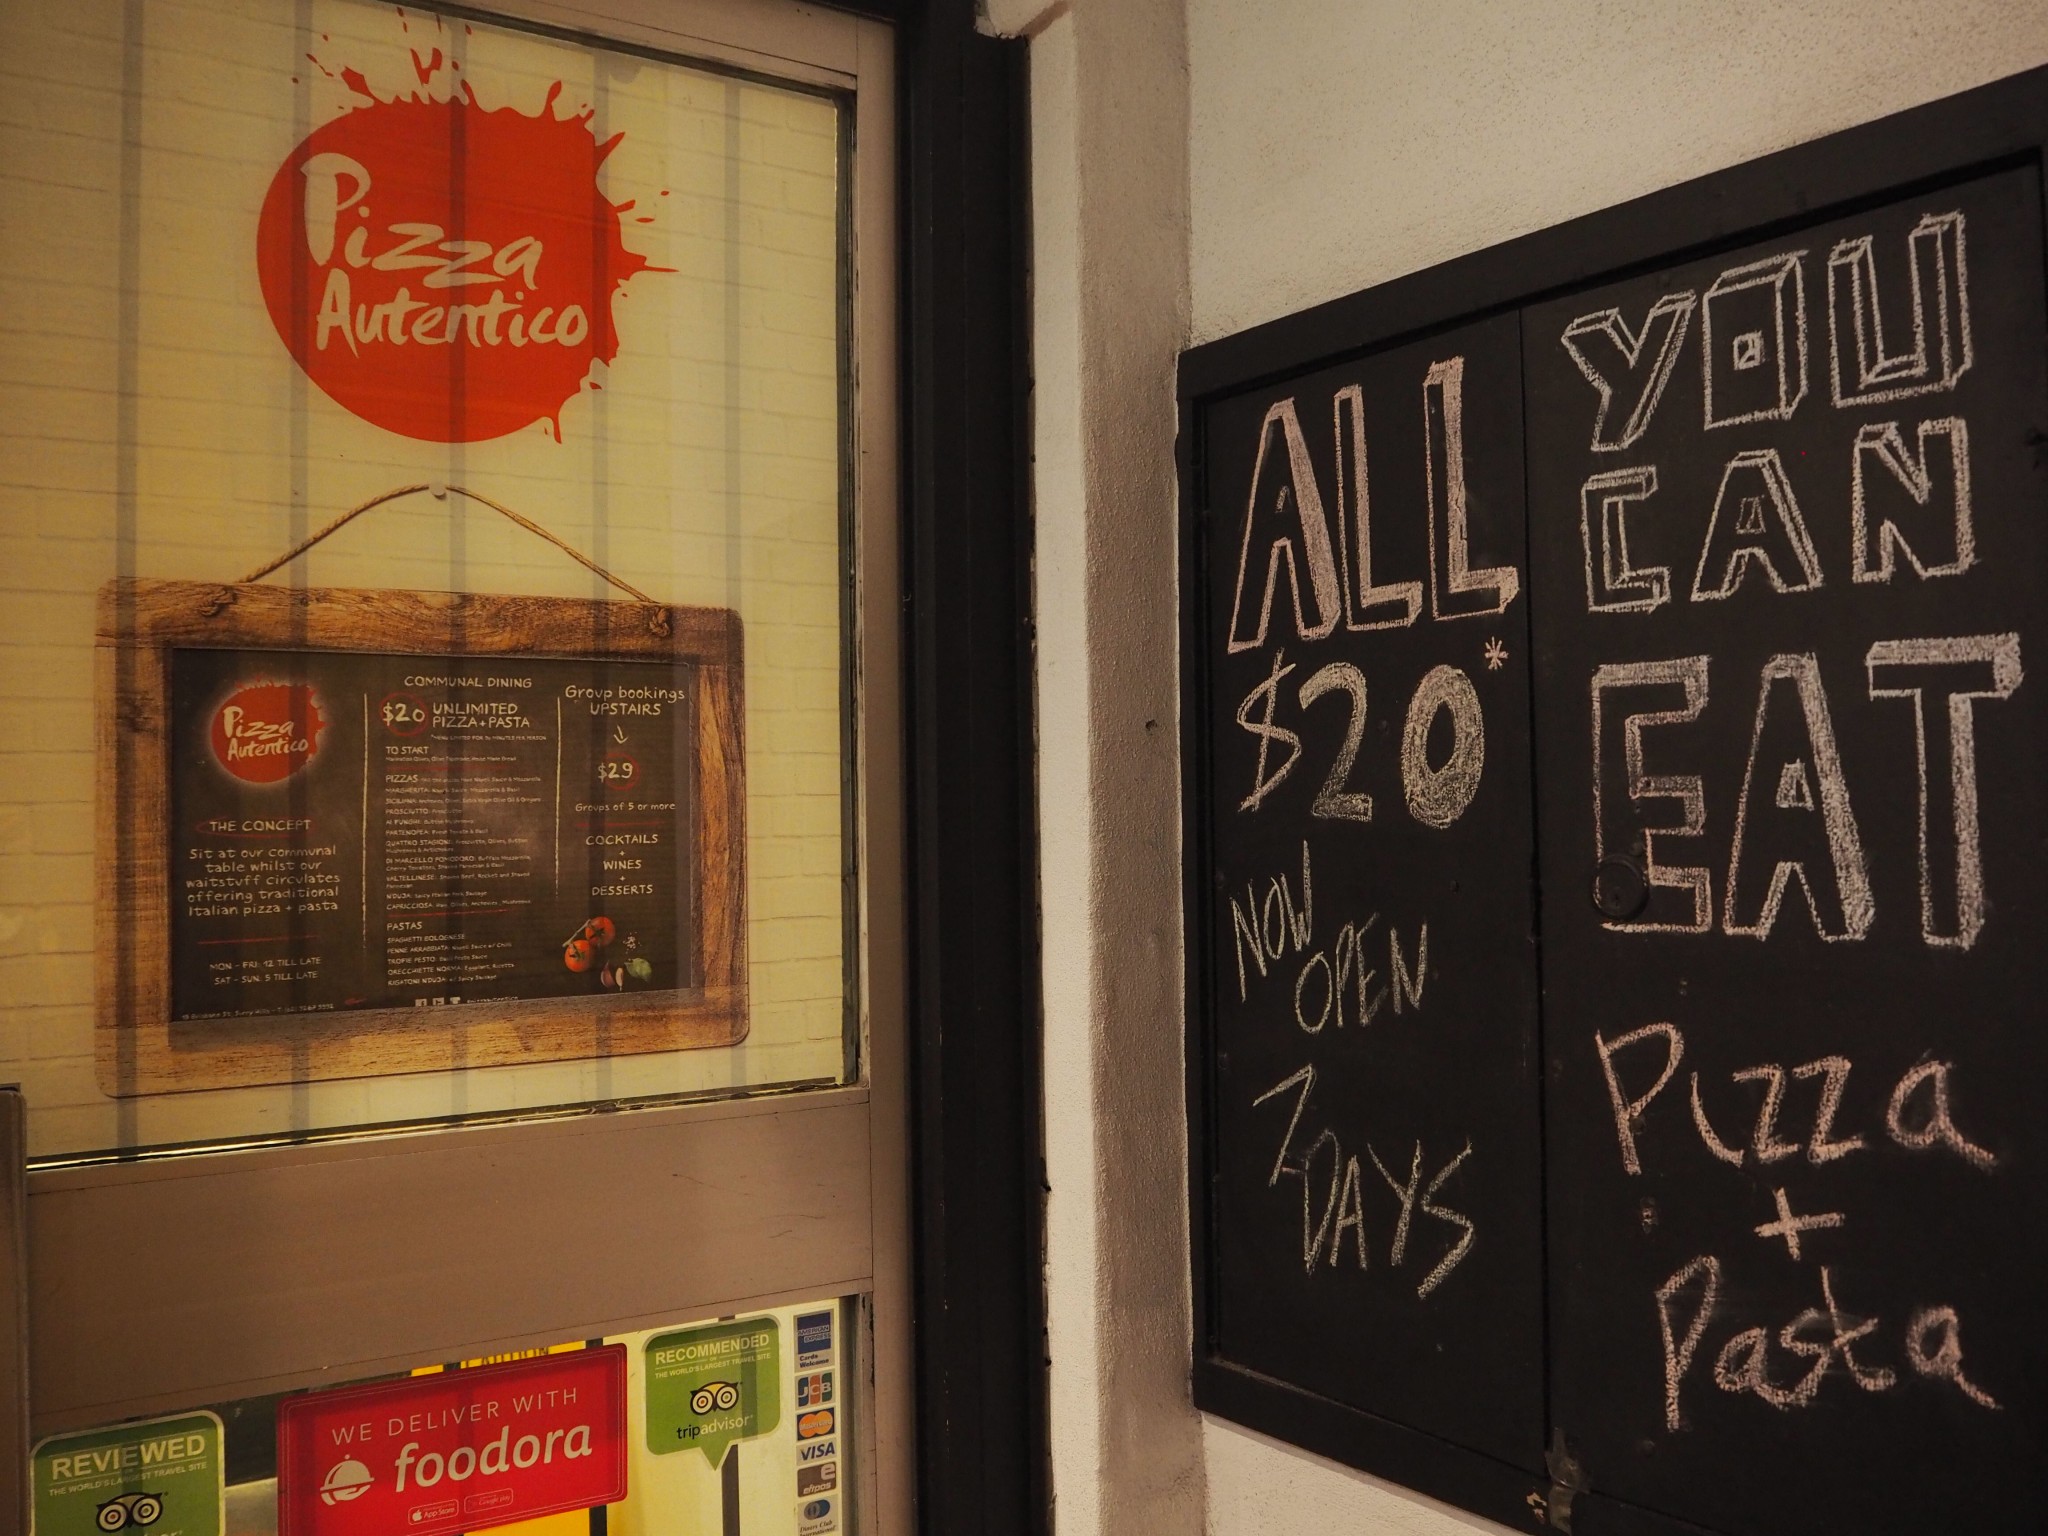 Pizza
Autentico
Pizza
Autentico
THE CONCEPT
Sit at our communal
table whilst our
waitstuff circulates
offering traditional
Italian pizza + pasta
MON - FRI: 12 TILL LATE
SAT - SUN: 5 TILL LATE
COMMUNAL DINING
$20 UNLIMITED
PIZZA+PASTA
TO START
PIZZAS
MARGHERITA:
PROSCIUTTO:
AI FUNGHI:
PARTENOPEA:
QUATTRO STAGIONI:
DI MARCELLO POMODORO: Buffalo Mozzarella,
VALTELLINESE:
N'DUJA: Spicy Italian Pork Sausage
CAPRICCIOSA:
PASTAS
SPAGHETTI BOLOGNESE
PENNE ARRABBIATA:
TROFIE PESTO:
ORECCHIETTE NORMA: Eggplant, Ricotta
RIGATONI N'DUJA:
Group bookings
UPSTAIRS
$29
Groups of 5 or more
COCKTAILS
+
WINES
+
DESSERTS
REVIEWED
THE WORLD'S LARGEST TRAVEL SITE
WE DELIVER WITH
foodora
App Store
Google play
RECOMMENDED
THE WORLD'S LARGEST TRAVEL SITE
tripadvisor
AMERICAN EXPRESS
Cards
Welcome
JCB
MasterCard
VISA
eftpos
Diners Club
International
ALL
$20*
NOW
OPEN
7
DAYS
YOU
CAN
EAT
Pizza
+
Pasta